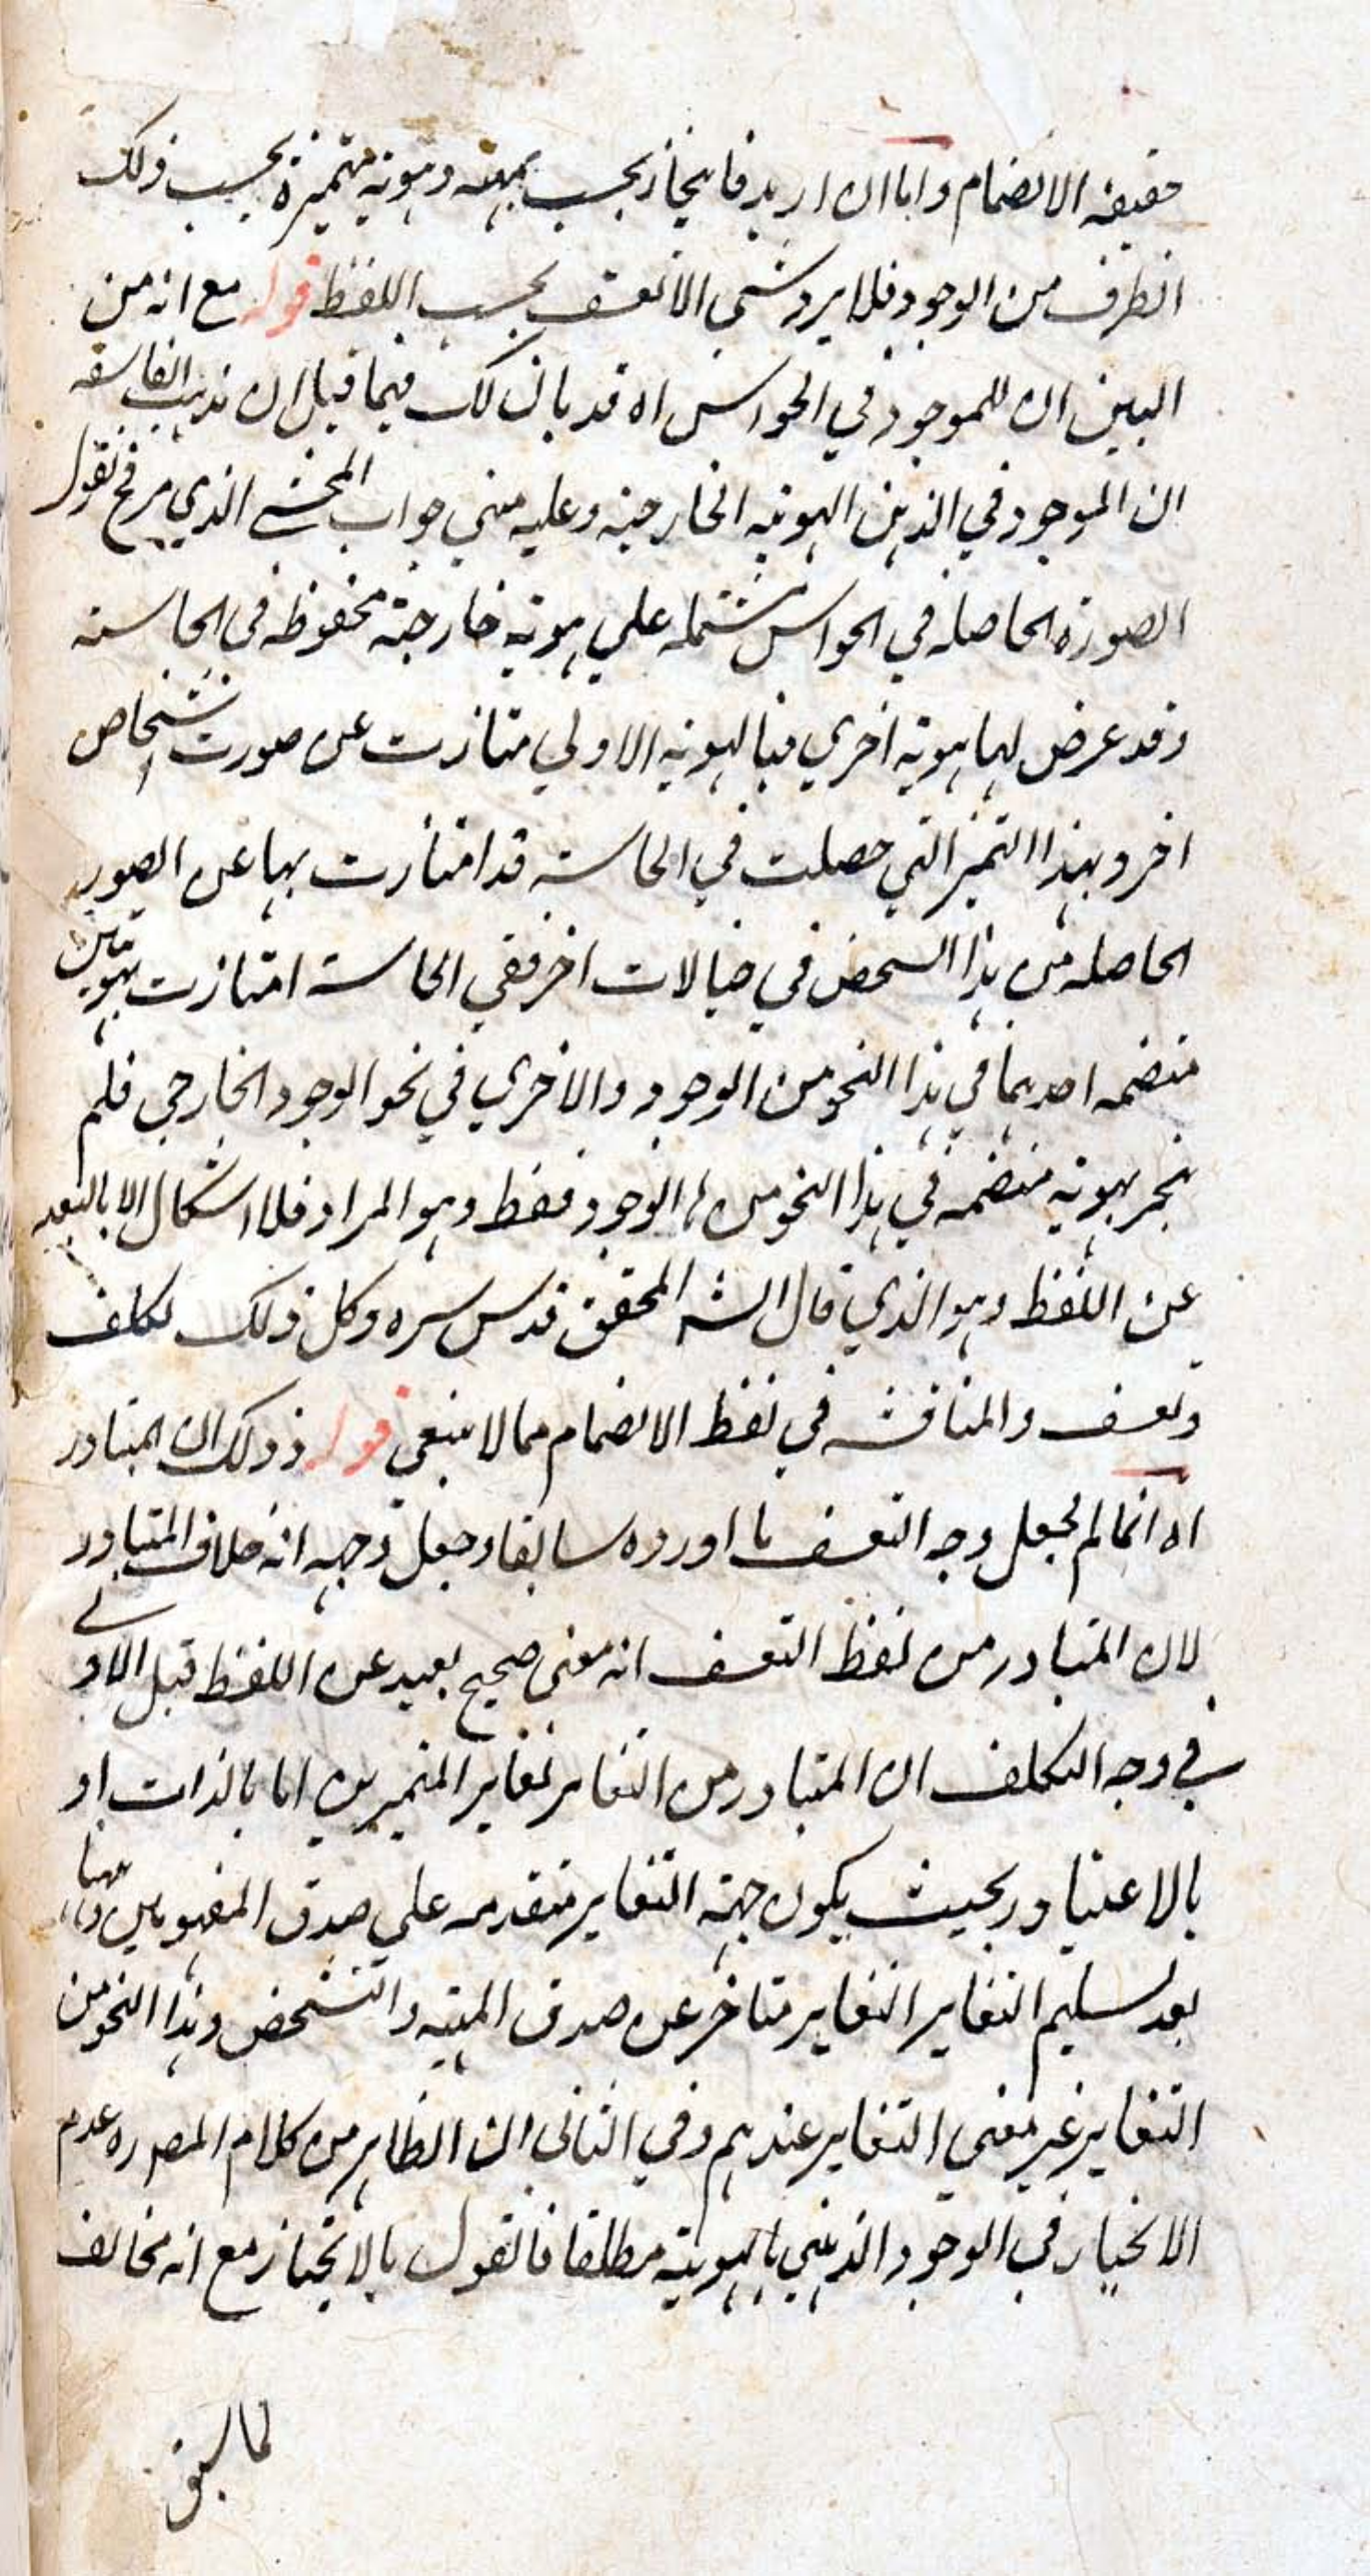 حقيقة الانضمام واما ان اريد فانحياز بحسب بهيته وهوية متميزة بحسب ذلك
الظرف من الوجود فلا يرد شئ الا تعسف بحسب اللفظ قوله مع انه من
البين ان للموجود في الحواس اه قد بان لك فيما قبل ان مذهب الفلاسفة
ان الموجود في الذهن الهوية الخارجية وعليه مبني جواب المحشي الذي مر فح نقول
الصورة الحاصلة في الحواس مشتملة علي هوية خارجية محفوظة في الحاسة
وقد عرض لها هوية اخري فبالهوية الاولي متازت عن صورت اشخاص
اخر وبهذا التميز التي حصلت في الحاسة قد امتازت بها عن الصور
الحاصلة من هذا الشخص في خيالات اخر ففي الحاسة امتازت بهويتين
منضمة احديهما في هذا النحو من الوجود والاخري في نحو الوجود الخارجي فلم
ينجر بهوية منضمة في هذا النحو من الوجود فقط وهو المراد فلا اشكال الا بالبعد
عن اللفظ وهو الذي قال الشه المحقق قدس سره وكل ذلك تكلف
وتعسف والمناقشة في لفظ الانضمام مما لا ينبغي قوله وذلك ان المتبادر
اه انما لم يجعل وجه التعسف ما اورده سابقا وجعل وجهه انه خلاف المتبادر
لان المتبادر من لفظ التعسف انه معني صحيح بعيد عن اللفظ قيل الاولي
في وجه التكلف ان المتبادر من التغاير تغاير المتميزين اما بالذات او
بالاعتبار وبحيث يكون جهة التغاير متقدمة علي صدق المفهومين وههنا
بعد تسليم التغاير التغاير متاخر عن صدق المهية والتشخص وهذا النحو من
التغاير غير معني التغاير عندهم وفي الثاني ان الظاهر من كلام المصره عدم
الانحياز في الوجود الذهني بالهوية مطلقا فالقول بالانحياز مع انه مخالف
لما سبق